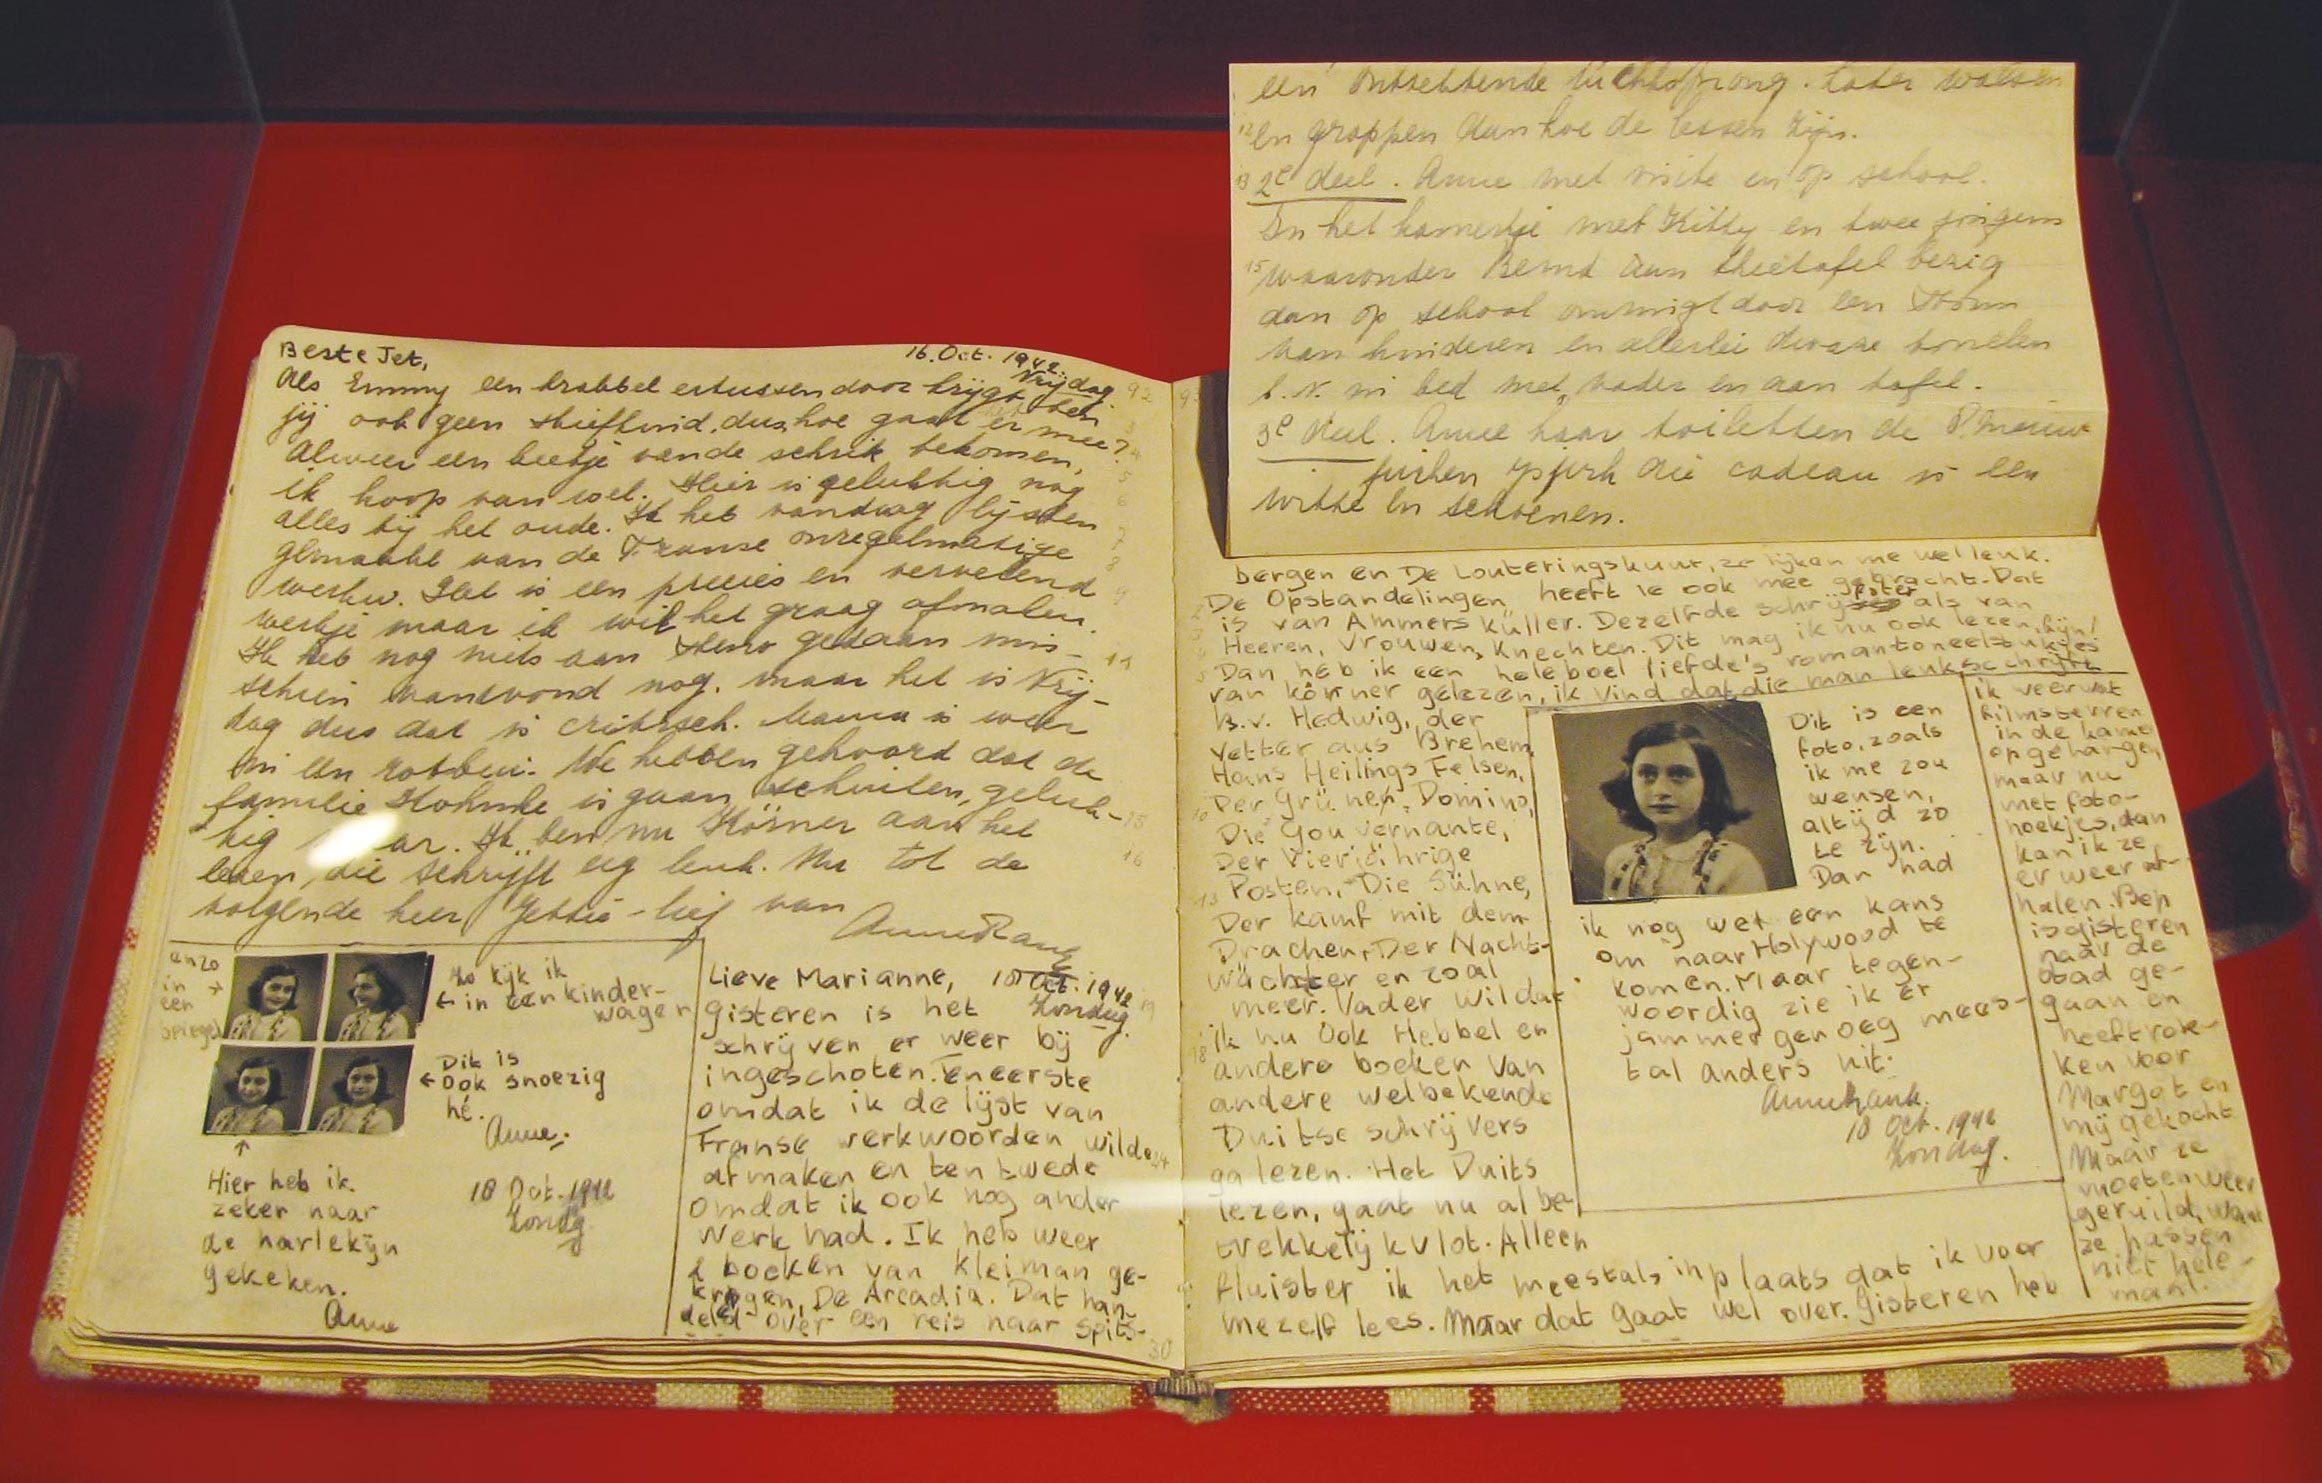 Beste Jet,
16. Oct. 1942
Vrijdag.
Als Emmy een krabbel ertussendoor krijgt ben
jij ook geen stiefkind, dus hoe gaat het er mee?
Alweer een beetje van de schrik bekomen,
ik hoop van wel. Hier is gelukkig nog
alles bij het oude. Ik heb vandaag lijsten
gemaakt van de Franse onregelmatige
werkw. Het is een precies en vervelend
werkje maar ik wil het graag afmaken.
Ik heb nog niets aan steno gedaan mis-
schien vanavond nog. maar het is Vrij-
dag dus dat is critisch. Mama is weer
in een rotbui. We hebben gehoord dat de
familie is gaan schuilen, geluk-
kig maar. Ik ben nu Körner aan het
lezen, die schrijft erg leuk. Nu tot de
volgende keer Jettie-lief van
Anne Frank
enzo
in
een
spiegel
zo kijk ik
in een kinder-
wagen
Dit is
ook snoezig
hé.
Anne.
Hier heb ik
zeker naar
de harlekijn
gekeken.
Anne
18 Oct. 1942
Zondag.
Lieve Marianne, 18 Oct. 1942
Zondag.
Gisteren is het
schrijven er weer bij
ingeschoten. Teneerste
omdat ik de lijst van
Franse werkwoorden wilde
afmaken en ten twede
omdat ik ook nog ander
werk had. Ik heb weer
2 boeken van Kleiman ge-
kregen, De Arcadia. Dat han-
deld over een reis naar Spits-
30
een ontzettende luchtsprong. Later walsen
en grappen dan hoe de lessen zijn.
2e deel. Anne met visite en op school.
In het kamertje met Kitty en twee jongens
waaronder Bernd aan theetafel bezig
dan op school omringt door een
van kinderen en allerlei dwaze tonelen
b.v. in bed met vader en aan tafel.
3e deel. Anne haar toiletten de 8 nieuwe
jurken ijsjurk die cadeau is een
witte en schoenen.
bergen en De Louteringskuur, ze lijken me wel leuk.
De Opstandelingen heeft ie ook mee gebracht. Dat
is van Ammers Küller. Dezelfde schrijfster als van
Heeren, Vrouwen, Knechten. Dit mag ik nu ook lezen, fijn!
Dan heb ik een heleboel liefde's romantoneelstukjes
van körner gelezen, ik vind dat die man leuk schrijft
B.v. Hedwig, der
Vetter aus Brehem,
Hans Heilings Felsen,
Der Grünen, Domino,
Die Gouvernante,
Der Vierjährige
Posten, Die Sühne,
Der kamf mit dem
Drachen, Der Nacht-
wächter en zoal
meer. Vader wil dat
ik nu ook Hebbel en
andere boeken van
andere welbekende
Duitse schrijvers
ga lezen. Het Duits
lezen, gaat nu al be-
trekkelijk vlot. Alleen
fluister ik het meestals inplaats dat ik voor
mezelf lees. Maar dat gaat wel over. Gisteren heb
Dit is een
foto, zoals
ik me zou
wensen,
altijd zo
te zijn.
Dan had
ik nog wel een kans
om naar Holywood te
komen. Maar tegen-
woordig zie ik er
jammer genoeg mees-
tal anders uit.
Annefrank.
18 Oct. 1942
Zondag.
ik weer wat
filmsterren
in de kamer
opgehangen,
maar nu
met foto-
hoekjes, dan
kan ik ze
er weer af-
halen. Bep
is gisteren
naar de
stad ge-
gaan en
heeft rok-
ken voor
Margot en
mij gekocht
Maar ze
moeten weer
geruild, want
ze passen
niet hele-
maal.